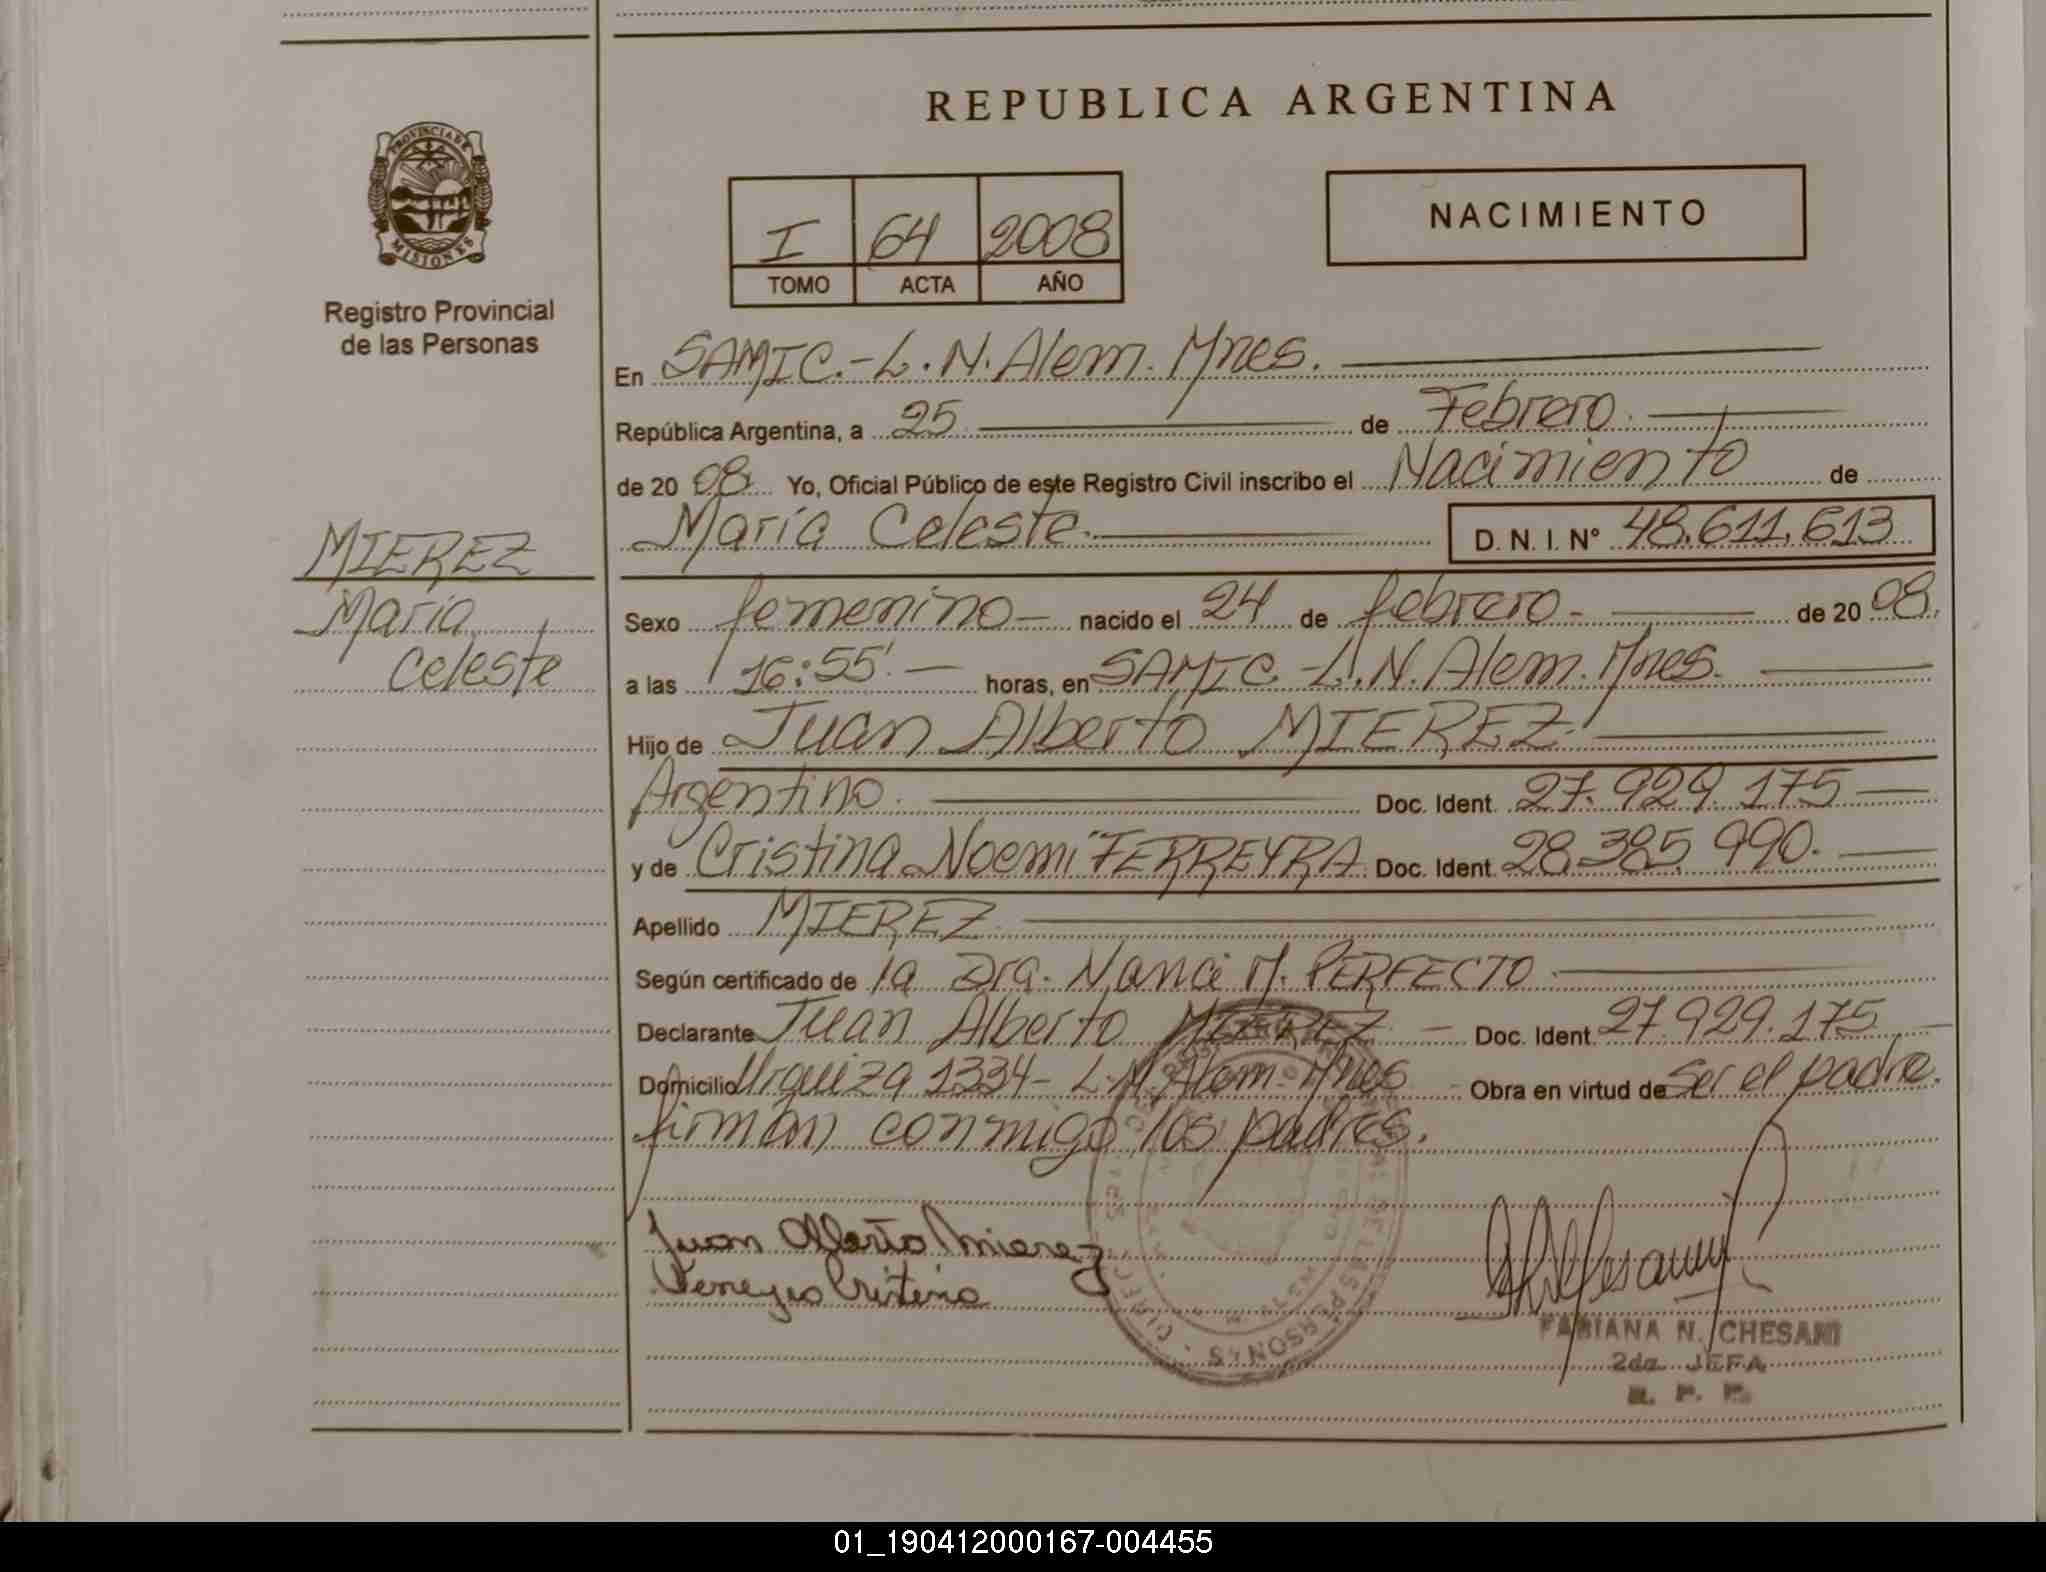 REPUBLICA ARGENTINA
PROVINCIA DE
MISIONES
Registro Provincial
de las Personas
I 64 2008
TOMO ACTA AÑO
NACIMIENTO
En SAMIC.-L.N.Alem.Mnes.
República Argentina, a 25 de Febrero.
de 20 08. Yo, Oficial Público de este Registro Civil inscribo el Nacimiento de
María Celeste. D. N. I. N° 48.611.613
MIEREZ
María
Celeste
Sexo femenino- nacido el 24 de febrero- de 20 08.
a las 16:55'.- horas, en SAMIC.-L.N.Alem.Mnes.
Hijo de Juan Alberto MIEREZ.
Argentino. Doc. Ident. 27.929.175
y de Cristina Noemí FERREYRA. Doc. Ident. 28.385.990.
Apellido MIEREZ
Según certificado de la Dra. Nanci M. PERFECTO.
Declarante Juan Alberto MIEREZ.- Doc. Ident. 27.929.175
Domicilio Urquiza 1334- L.N.Alem-Mnes Obra en virtud de Ser el padre.
firman conmigo los padres.
Juan Alberto Mierez
Ferreyra Cristina
PERSONAS
FABIANA N. CHESANI
2da JEFA
R. P. P.
01_190412000167-004455